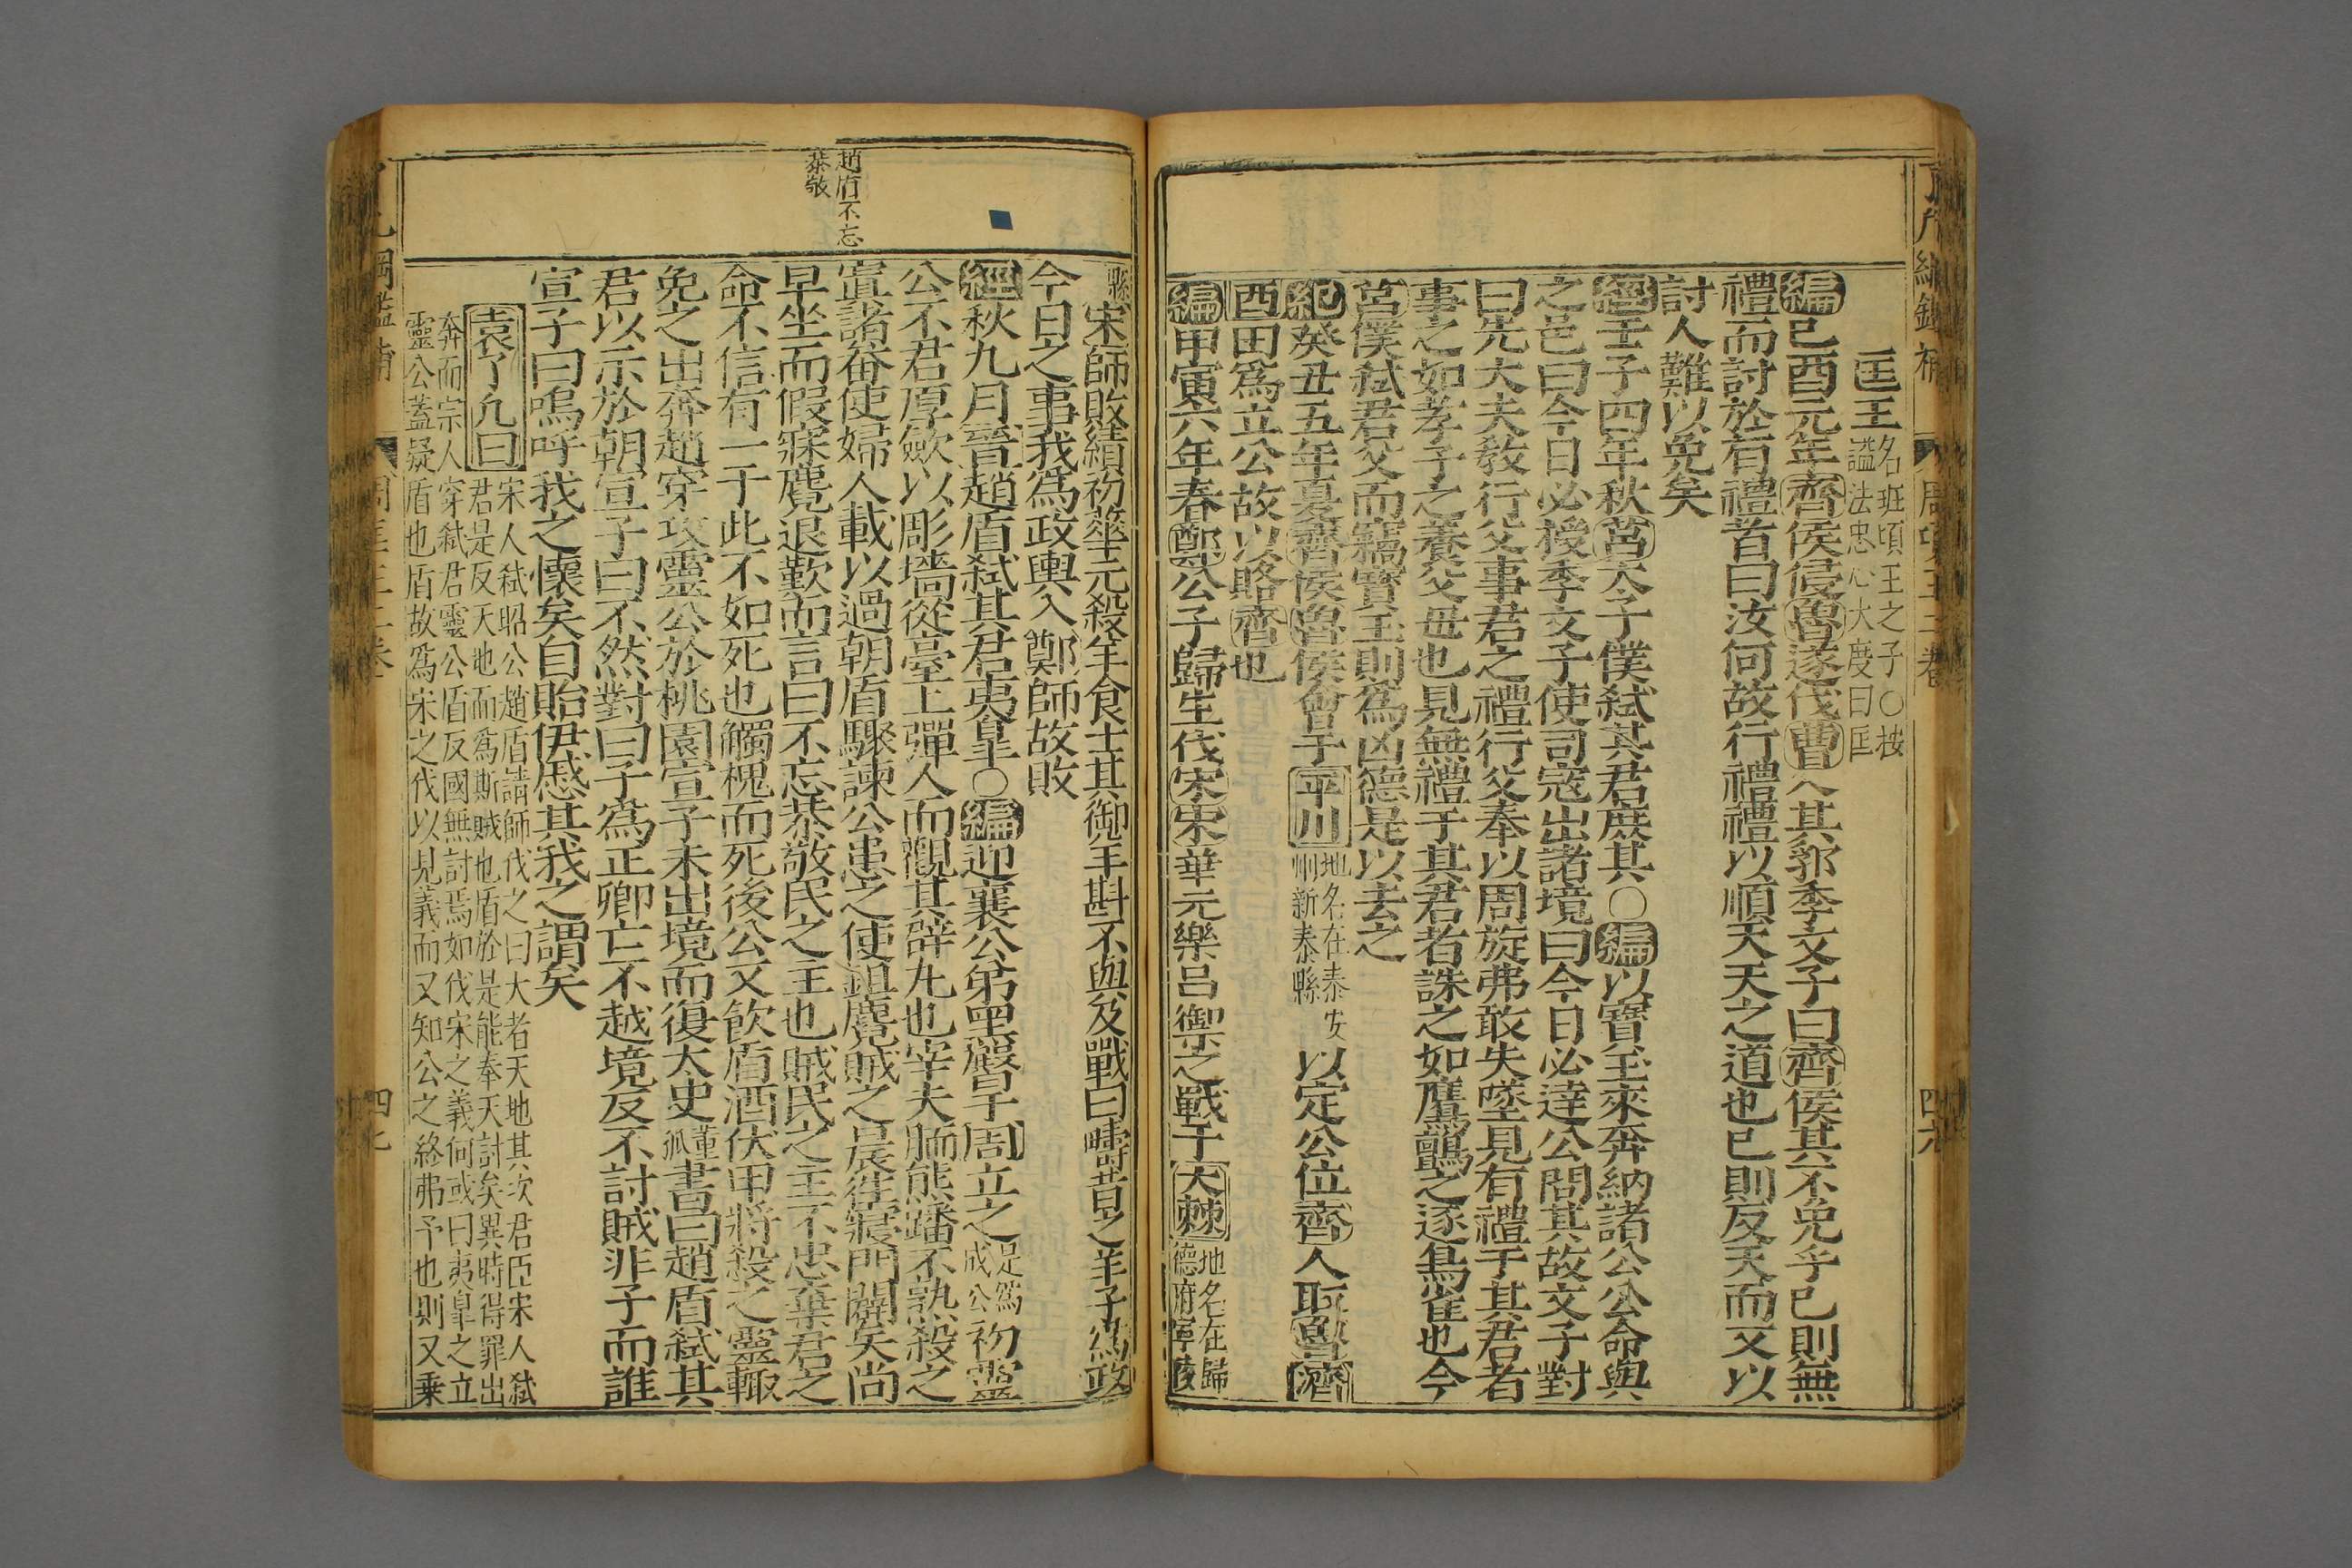 匡王名班頃王之子○按
謚法忠心大度曰匡
編己酉元年齊侯侵魯遂伐曹入其郛季文子曰齊侯其不免乎己則無
禮而討於有禮者曰汝何故行禮禮以順天天之道也己則反天而又以
討人難以免矣
經壬子四年秋莒太子僕弒其君庶其○編以寶玉來奔納諸公公命與
之邑曰今日必授季文子使司寇出諸境曰今日必達公問其故文子對
曰先大夫敎行父事君之禮行父奉以周旋弗敢失墜見有禮于其君者
事之如孝子之養父母也見無禮于其君者誅之如鷹鸇之逐鳥雀也今
莒僕弒君父而竊寶玉則爲凶德是以去之
紀癸丑五年夏齊侯魯侯會于平川地名在泰安
州新泰縣以定公位齊人取魯濟
西田爲立公故以賂齊也
編甲寅六年春鄭公子歸生伐宋宋華元樂呂禦之戰于大棘地名在歸
德府寧陵
縣宋師敗績初華元殺羊食士其御羊斟不與及戰曰疇昔之羊子爲政
今日之事我爲政輿入鄭師故敗
經秋九月晉趙盾弒其君夷皐○編迎襄公弟黑臀于周立之是爲
成公初靈
公不君厚斂以彫墻從臺上彈人而觀其辟丸也宰夫胹熊蹯不熟殺之
寘諸畚使婦人載以過朝盾驟諫公患之使鉏麑賊之晨往寢門闢矣尚
早坐而假寐麑退歎而言曰不忘恭敬民之主也賊民之主不忠棄君之
命不信有一于此不如死也觸槐而死後公又飮盾酒伏甲將殺之靈輒
免之出奔趙穿攻靈公於桃園宣子未出境而復太史董
狐書曰趙盾弒其
君以示於朝宣子曰不然對曰子爲正卿亡不越境反不討賊非子而誰
宣子曰嗚呼我之懷矣自貽伊慼其我之謂矣
袁了凡曰宋人弒昭公趙盾請師伐之曰大者天地其次君臣宋人弒
君是反天地而爲斯賊也盾於是能奉天討矣異時得罪出
奔而宗人穿弒君靈公盾反國無討焉如伐宋之義何或曰夷皐之立
靈公蓋疑盾也盾故爲宋之伐以見義而又知公之終弗予也則又乗
趙盾不忘
恭敬
四七